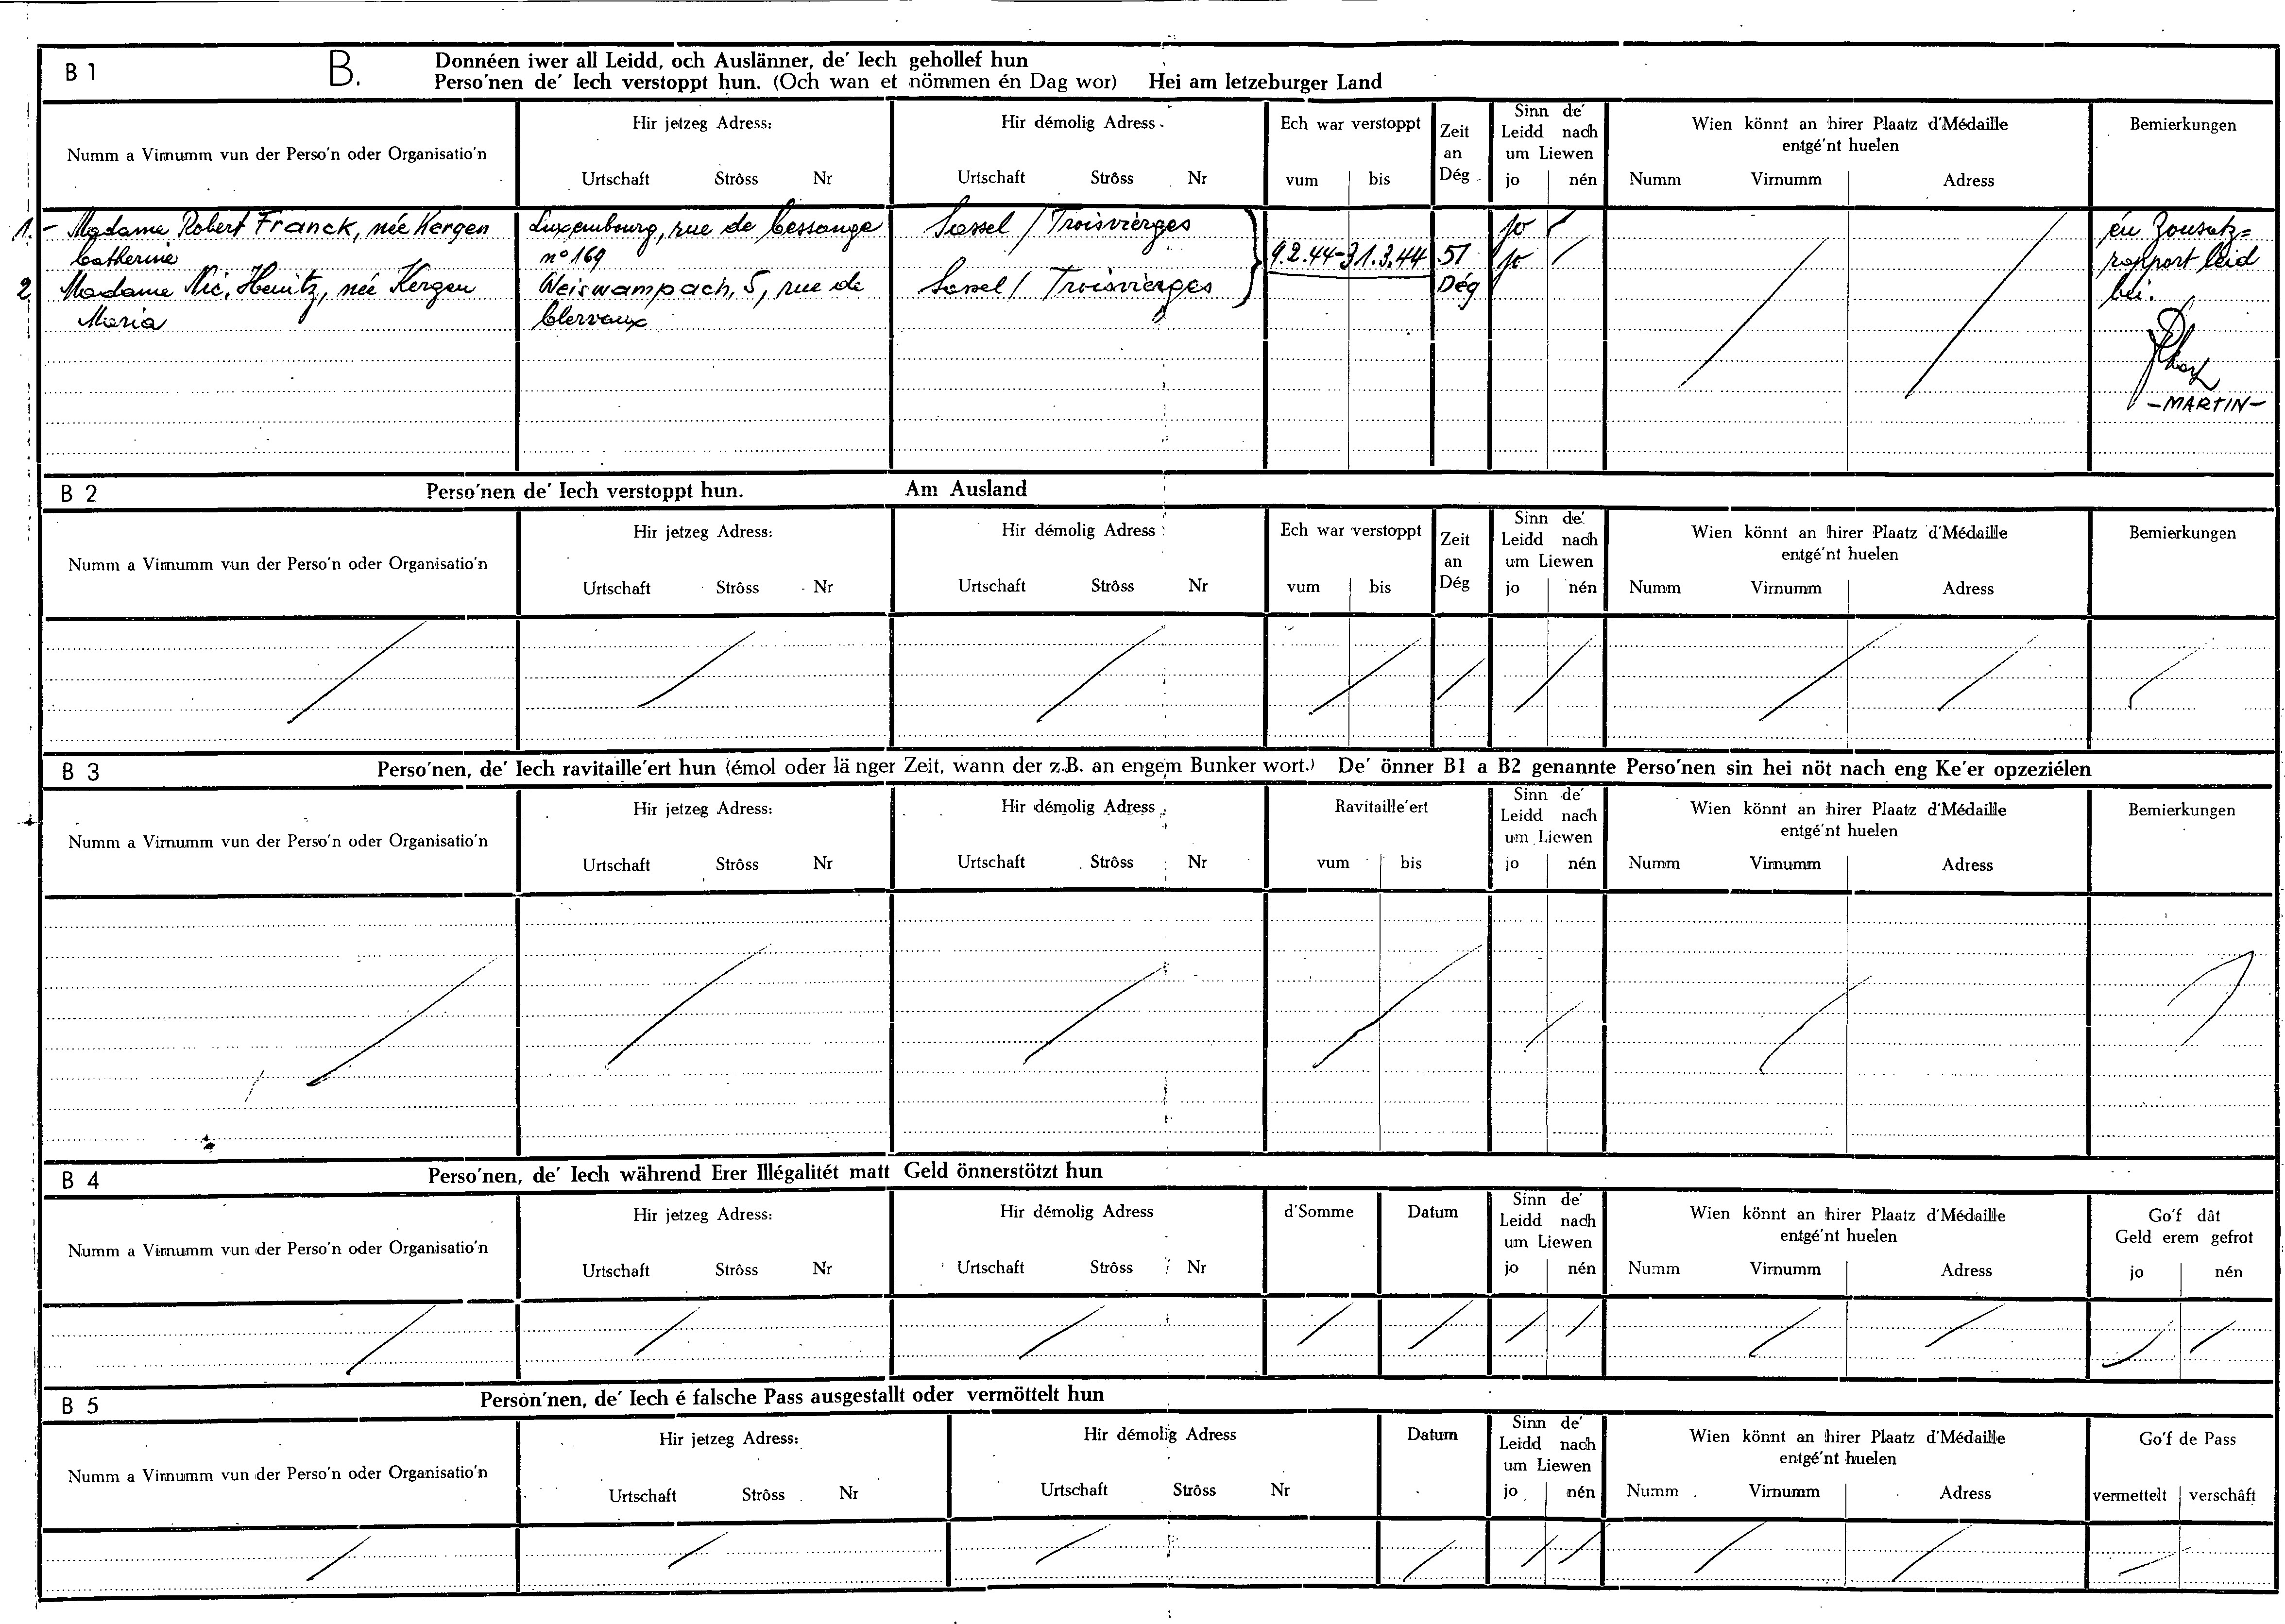 B 1
B.
Donnéen iwer all Leidd, och Auslänner, de' Iech gehollef hun
Perso'nen de' Iech verstoppt hun. (Och wan et nömmen én Dag wor) Hei am letzeburger Land
Numm a Virnumm vun der Perso'n oder Organisatio'n
Hir jetzeg Adress:
Urtschaft Strôss Nr
Hir démolig Adress
Urtschaft Strôss Nr
Ech war verstoppt
vum bis
Zeit
an
Dég
Sinn de'
Leidd nach
um Liewen
jo nén
Wien könnt an hirer Plaatz d'Médaille
entgé'nt huelen
Numm Virnumm Adress
Bemierkungen
1. - Madame Robert Franck, née Kergen
Catherine
Luxembourg, rue de Cessange
n° 169
Sassel / Troisvierges
jo
2. Madame Nic. Heinitz, née Kergen
Maria
Weiswampach, 5, rue de
Clervaux
Sassel / Troisvierges
9.2.44-31.3.44
51
Dég
jo
én Zousatz=
rapport leid
bei.
-MARTIN-
B 2
Perso'nen de' Iech verstoppt hun. Am Ausland
Numm a Virnumm vun der Perso'n oder Organisatio'n
Hir jetzeg Adress:
Urtschaft Strôss Nr
Hir démolig Adress
Urtschaft Strôss Nr
Ech war verstoppt
vum bis
Zeit
an
Dég
Sinn de'
Leidd nach
um Liewen
jo nén
Wien könnt an hirer Plaatz d'Médaille
entgé'nt huelen
Numm Virnumm Adress
Bemierkungen
B 3
Perso'nen, de' Iech ravitaille'ert hun (émol oder länger Zeit, wann der z.B. an engem Bunker wort.) De' önner B1 a B2 genannte Perso'nen sin hei nöt nach eng Ke'er opzeziélen
Numm a Virnumm vun der Perso'n oder Organisatio'n
Hir jetzeg Adress:
Urtschaft Strôss Nr
Hir démolig Adress
Urtschaft Strôss Nr
Ravitaille'ert
vum bis
Sinn de'
Leidd nach
um Liewen
jo nén
Wien könnt an hirer Plaatz d'Médaille
entgé'nt huelen
Numm Virnumm Adress
Bemierkungen
B 4
Perso'nen, de' Iech während Erer Illégalitét matt Geld önnerstötzt hun
Numm a Virnumm vun der Perso'n oder Organisatio'n
Hir jetzeg Adress:
Urtschaft Strôss Nr
Hir démolig Adress
Urtschaft Strôss Nr
d'Somme
Datum
Sinn de'
Leidd nach
um Liewen
jo nén
Wien könnt an hirer Plaatz d'Médaille
entgé'nt huelen
Numm Virnumm Adress
Go'f dât
Geld erem gefrot
jo nén
B 5
Person'nen, de' Iech é falsche Pass ausgestallt oder vermöttelt hun
Numm a Virnumm vun der Perso'n oder Organisatio'n
Hir jetzeg Adress:
Urtschaft Strôss Nr
Hir démolig Adress
Urtschaft Strôss Nr
Datum
Sinn de'
Leidd nach
um Liewen
jo nén
Wien könnt an hirer Plaatz d'Médaille
entgé'nt huelen
Numm Virnumm Adress
Go'f de Pass
vermettelt verschâft